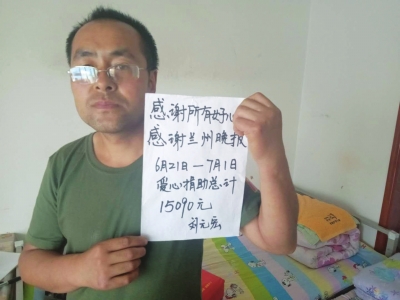 感谢所有好心
感谢兰州晚报
6月21日—7月1日
爱心捐助总计
15090元
刘元宏